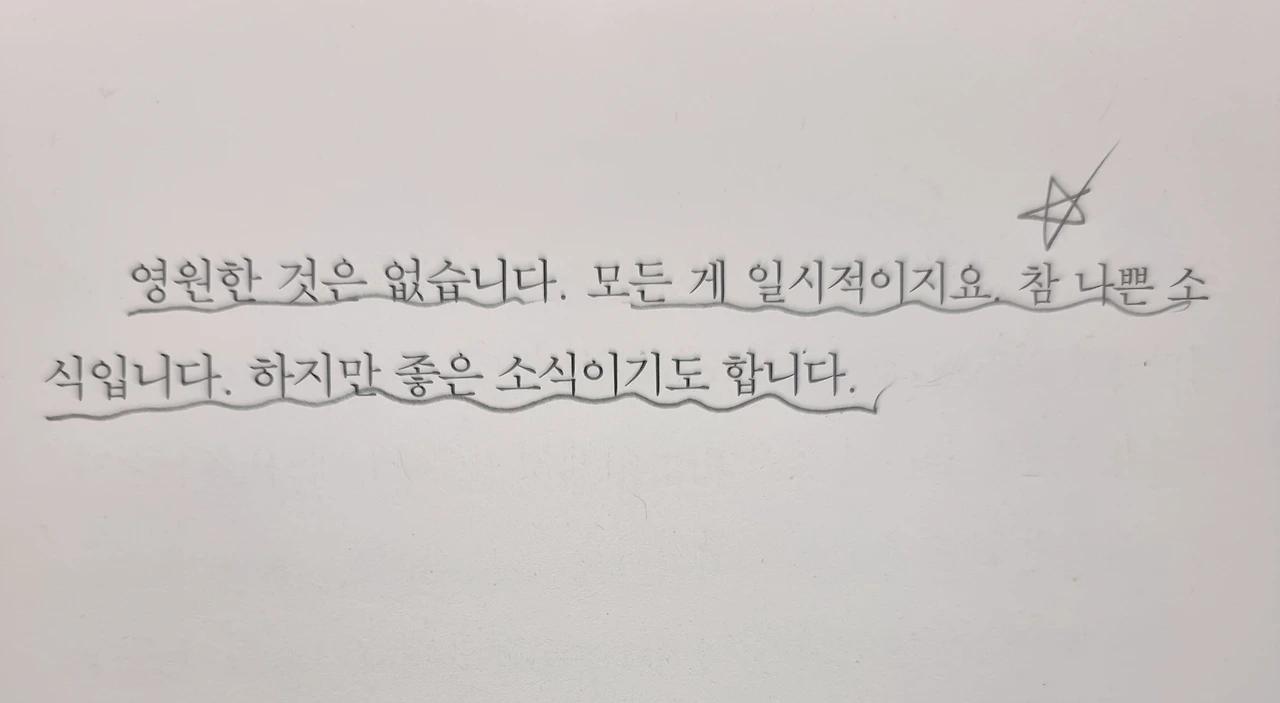 영원한 것은 없습니다. 모든 게 일시적이지요. 참 나쁜 소
식입니다. 하지만 좋은 소식이기도 합니다.